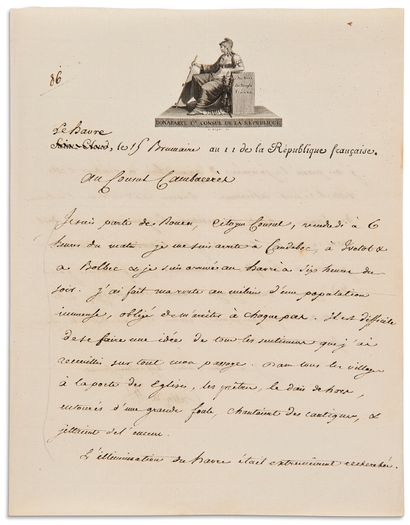 86
BONAPARTE Ier CONSUL DE LA REPUBLIQUE
Le havre
Sain-Cloud, le 15 Brumaire an 11 de la République française.
Au Consul Cambacérès
Je suis parti de Rouen, Citoyen Consul, vendredi à 6
heures du matin je me suis arreté à Caudebec, à Ivetot &
a Bolbec & je suis arrivé au havre à six heures du
soir. j'ai fait ma route au milieu d'une population
immense, obligé de m'arrêter à chaque pas. Il est difficile
de se faire une idée de tous les sentimens que j'ai
accueillis sur tout mon passage. Dans tous les villages
à la porte des Eglises, les prêtres, le dais dehors,
entourés d'une grande foule, chantaient des cantiques, &
jettaient de l'encens.
L'illumination du havre était extrêmement recherchée.